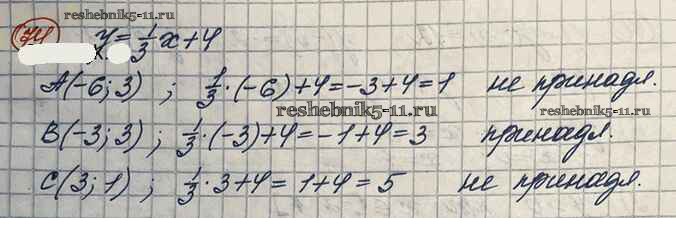 reshebnik5-11.ru
74 y = 1/3 x + 4
A(-6; 3) ; 1/3 · (-6) + 4 = -3 + 4 = 1 не принадл.
reshebnik5-11.ru
B(-3; 3) ; 1/3 · (-3) + 4 = -1 + 4 = 3 принадл.
C(3; 1) ; 1/3 · 3 + 4 = 1 + 4 = 5 не принадл.
reshebnik5-11.ru